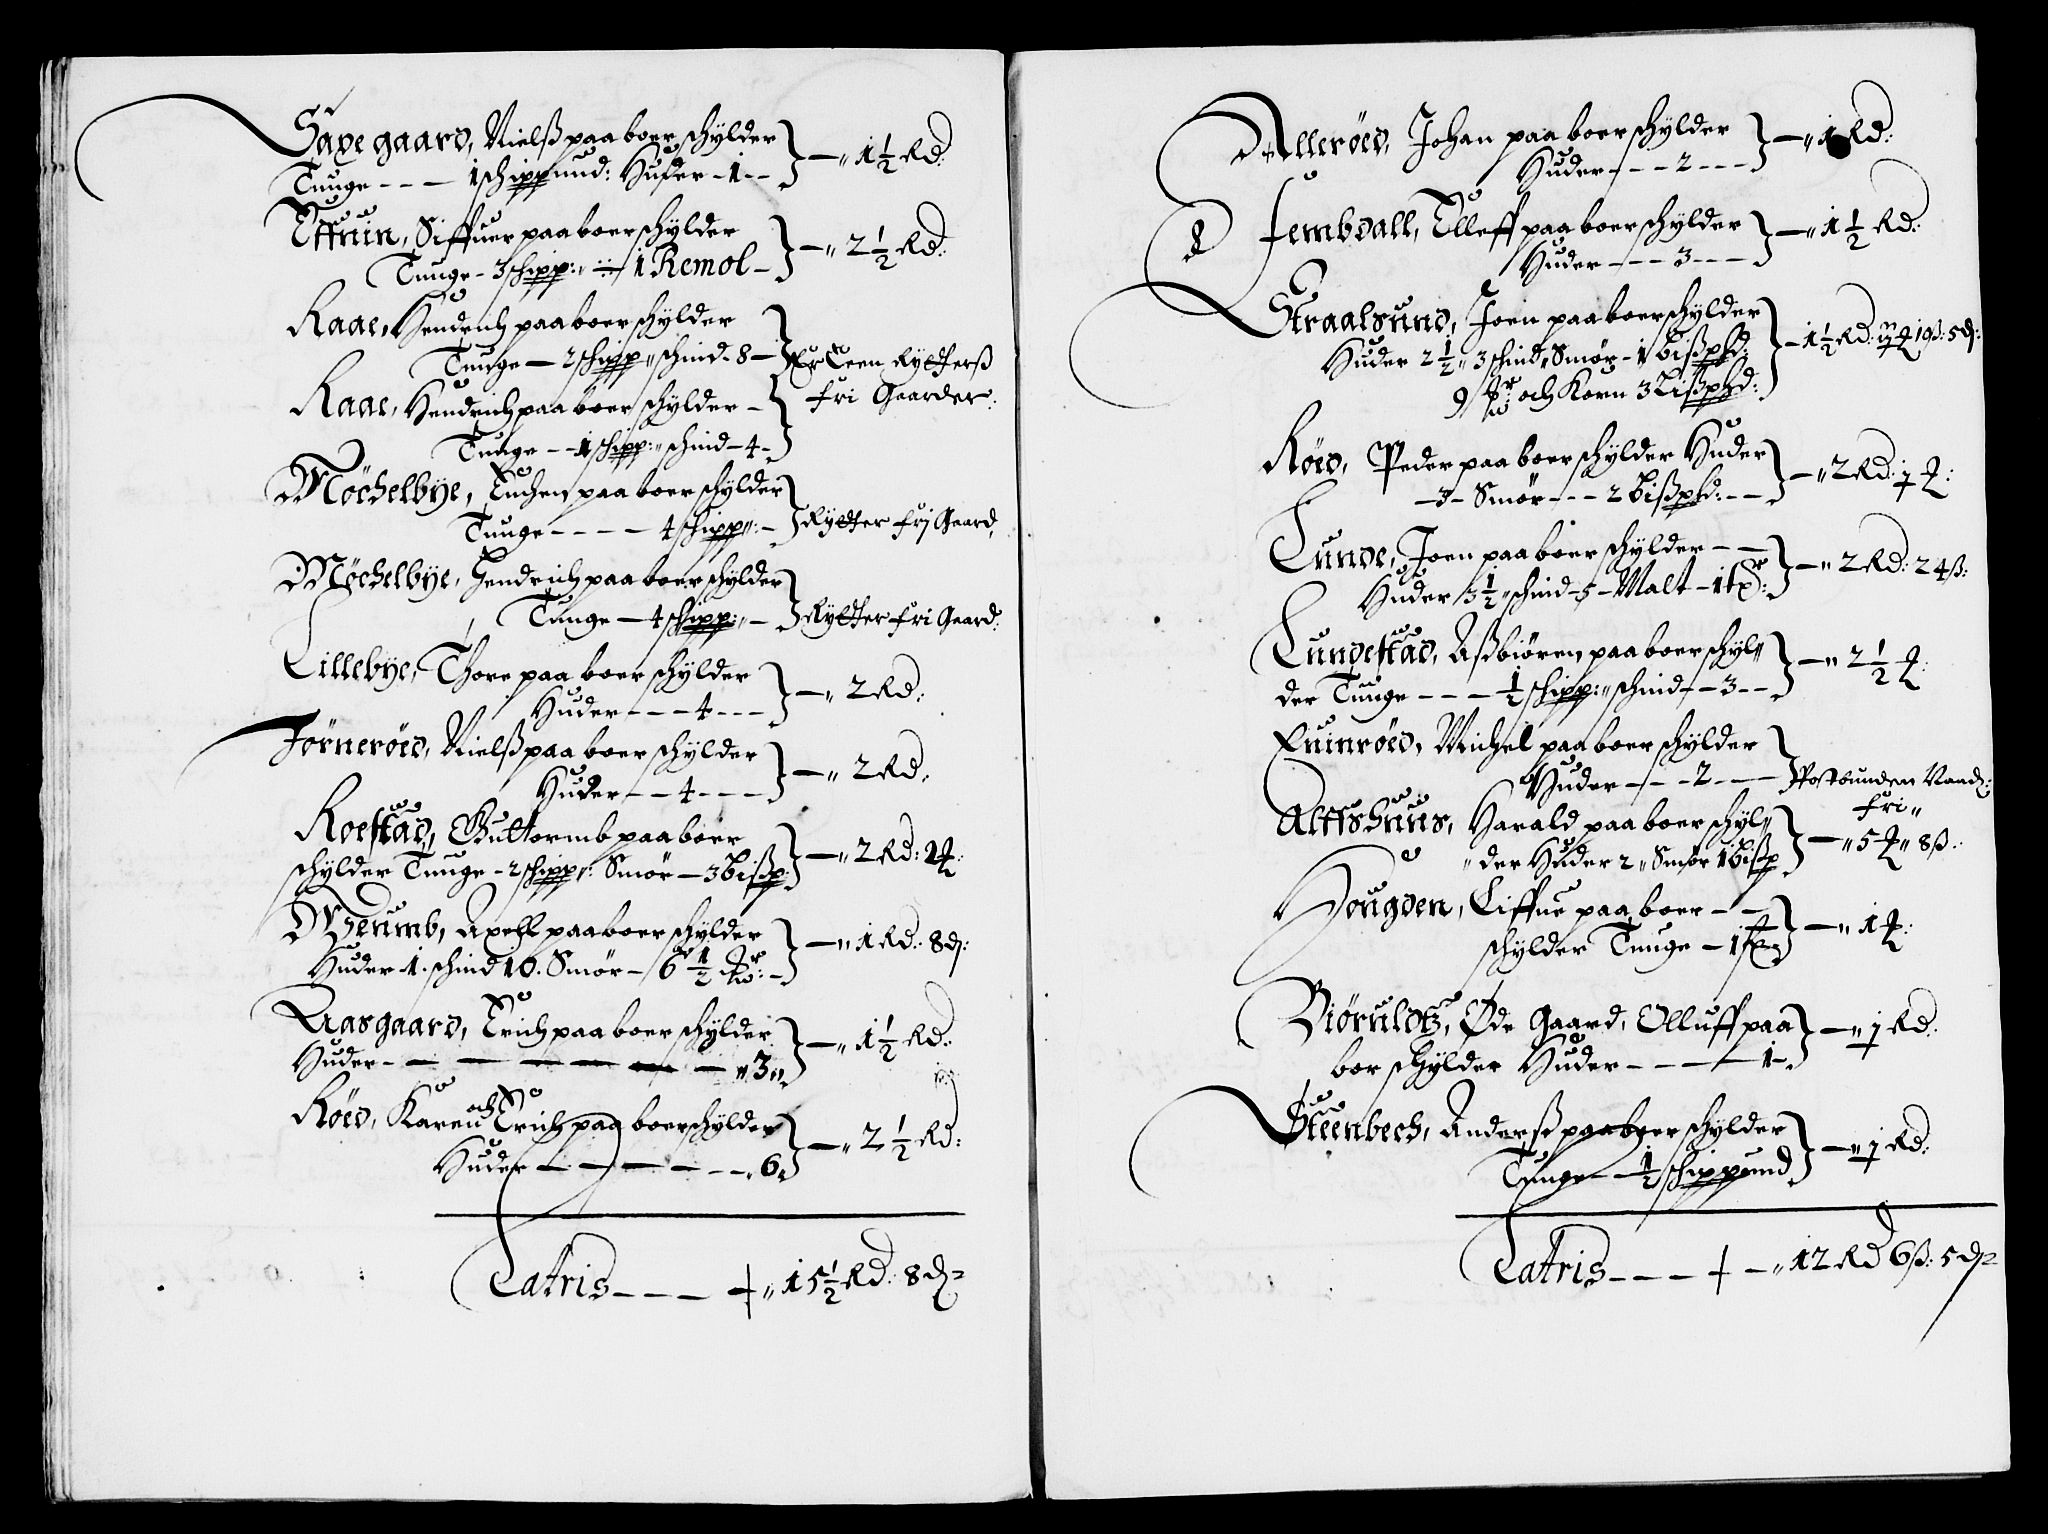 Saxegaard, Nielß paa boer schÿlder
Tunge - - - 1 schippund: Huder - 1 - - } — „ 1½ Rd:
Effuin, Siffuer paa boer schÿlder
Tunge - 3 schipp: „ 1 Remol - } — „ 2½ Rd:
Raae, Hendrich paa boer schÿlder
Tunge — 2 schipp „ schind - 8 — } Er Een Rÿtterß
Raae, Hendrich paa boer schÿlder — fri Gaarder:
Tunge - - 1 schipp: „ schind - 4 - }
Möchelbÿe, paa boer schÿlder
Tunge - - - - 4 schipp „: - } Rÿtter frj Gaard,
Möchelbÿe, Hendrich paa boer schÿlder
Tunge — 4 schipp: „ - } Rÿtter fri Gaard:
Lillebÿe, Thore paa boer schÿlder
Huder - - - 4 - - - } — „ 2 Rd:
Jörneröed, Nielß paa boer schÿlder
Huder - - 4 - - - - } — „ 2 Rd.
Roestad, Guttormb paa boer
schÿlder Tunge - 2 schipp „: Smör — 3 Bißp: } — „ 2 Rd:
Weumb, Axell paa boer schÿlder
Huder 1. schind 10. Smör — 6½ } — „ 1 Rd: 8 d:
Aasgaard, Erich paa boer schÿlder
Huder - — — — — — „ 3 „ } — „ 1½ Rd:
Röed, Karen och Erich paa boer schÿlder
Huder — — — - - - - 6 } — „ 2½ Rd:
Latris - - - - „ 15½ Rd: 8 d
Alleröed, Johan paa boer schÿlder
Huder - - - 2 - - - } — „ 1 Rd:
Jembdall, Elleff paa boer schÿlder
Huder - - - 3 - - - } — „ 1½ Rd:
Straalsund, Joen paa boer schÿlder
Huder 2½ „ 3 schind „ Smör - 1 Bißpd: } - 1½ Rd: 19 ß: 5 d:
9 och Korn 3 Bißpd:
Röed, Peder paa boer schÿlder Huder
- 3 - Smör - - - 2 Bißpd: - - } — „ 2 Rd:
Lunde, Joen paa boer schÿlder - -
Huder 3½ „ schind - 5 - Malt - 1 } — „ 2 Rd: 24 ß:
Lundestad, Aßbiören paa boer schÿl„
der Tunge - - - ½ schipp: „ schind - - 3 - - } — „ 2½
Euinröed, Michel paa boer schÿlder
Huder - - - 2 - — } Postbunden
fri „
Altshuus, Harald paa boer schÿl„
„ der Huder 2 „ Smör 1 Bißp } — „ 5 „ 8 ß.
Hougden, Liffue paa boer - -
schÿlder Tunge — 1 } — „ 1
Biöruldtz, Öde Gaard, Olluff paa
boer schÿlder Huder - - - — 1 - } — „ 1 Rd:
Steenbech, Anderß paa boer schÿlder
Tunge - - ½ schippund } — „ 1 Rd:
Latris - - - - „ 12 Rd 6 ß: 5 d